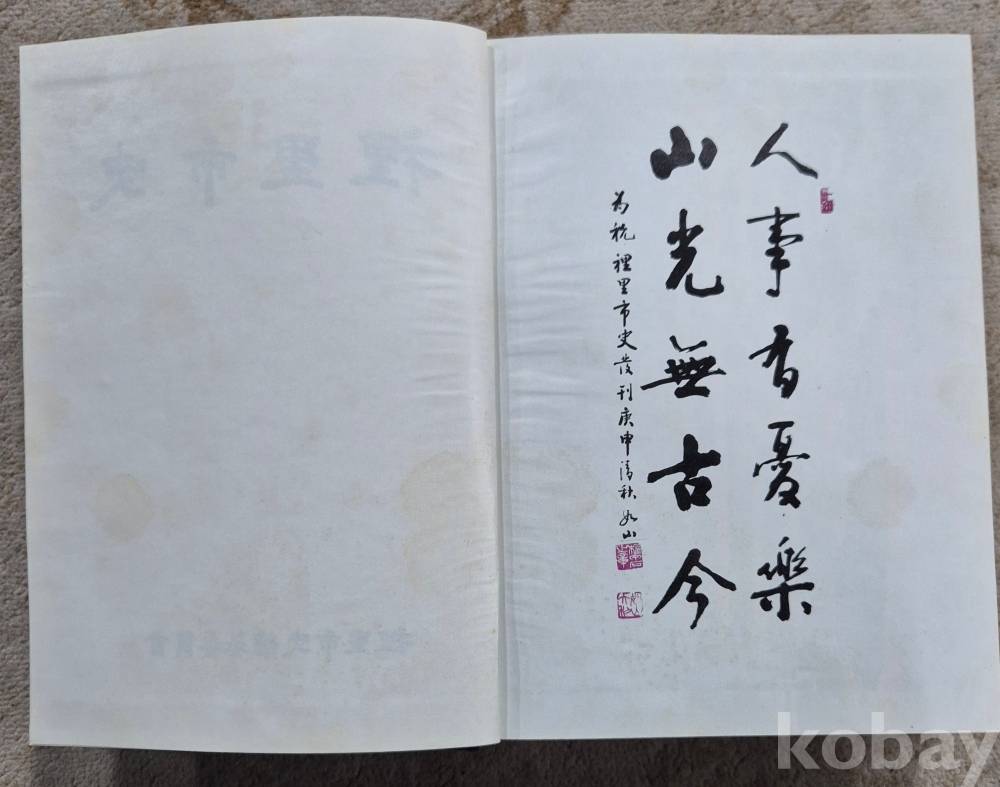 人事有憂樂
山光無古今
為祝裡里市史發刊庚申淸秋如山
裡里市史
kobay